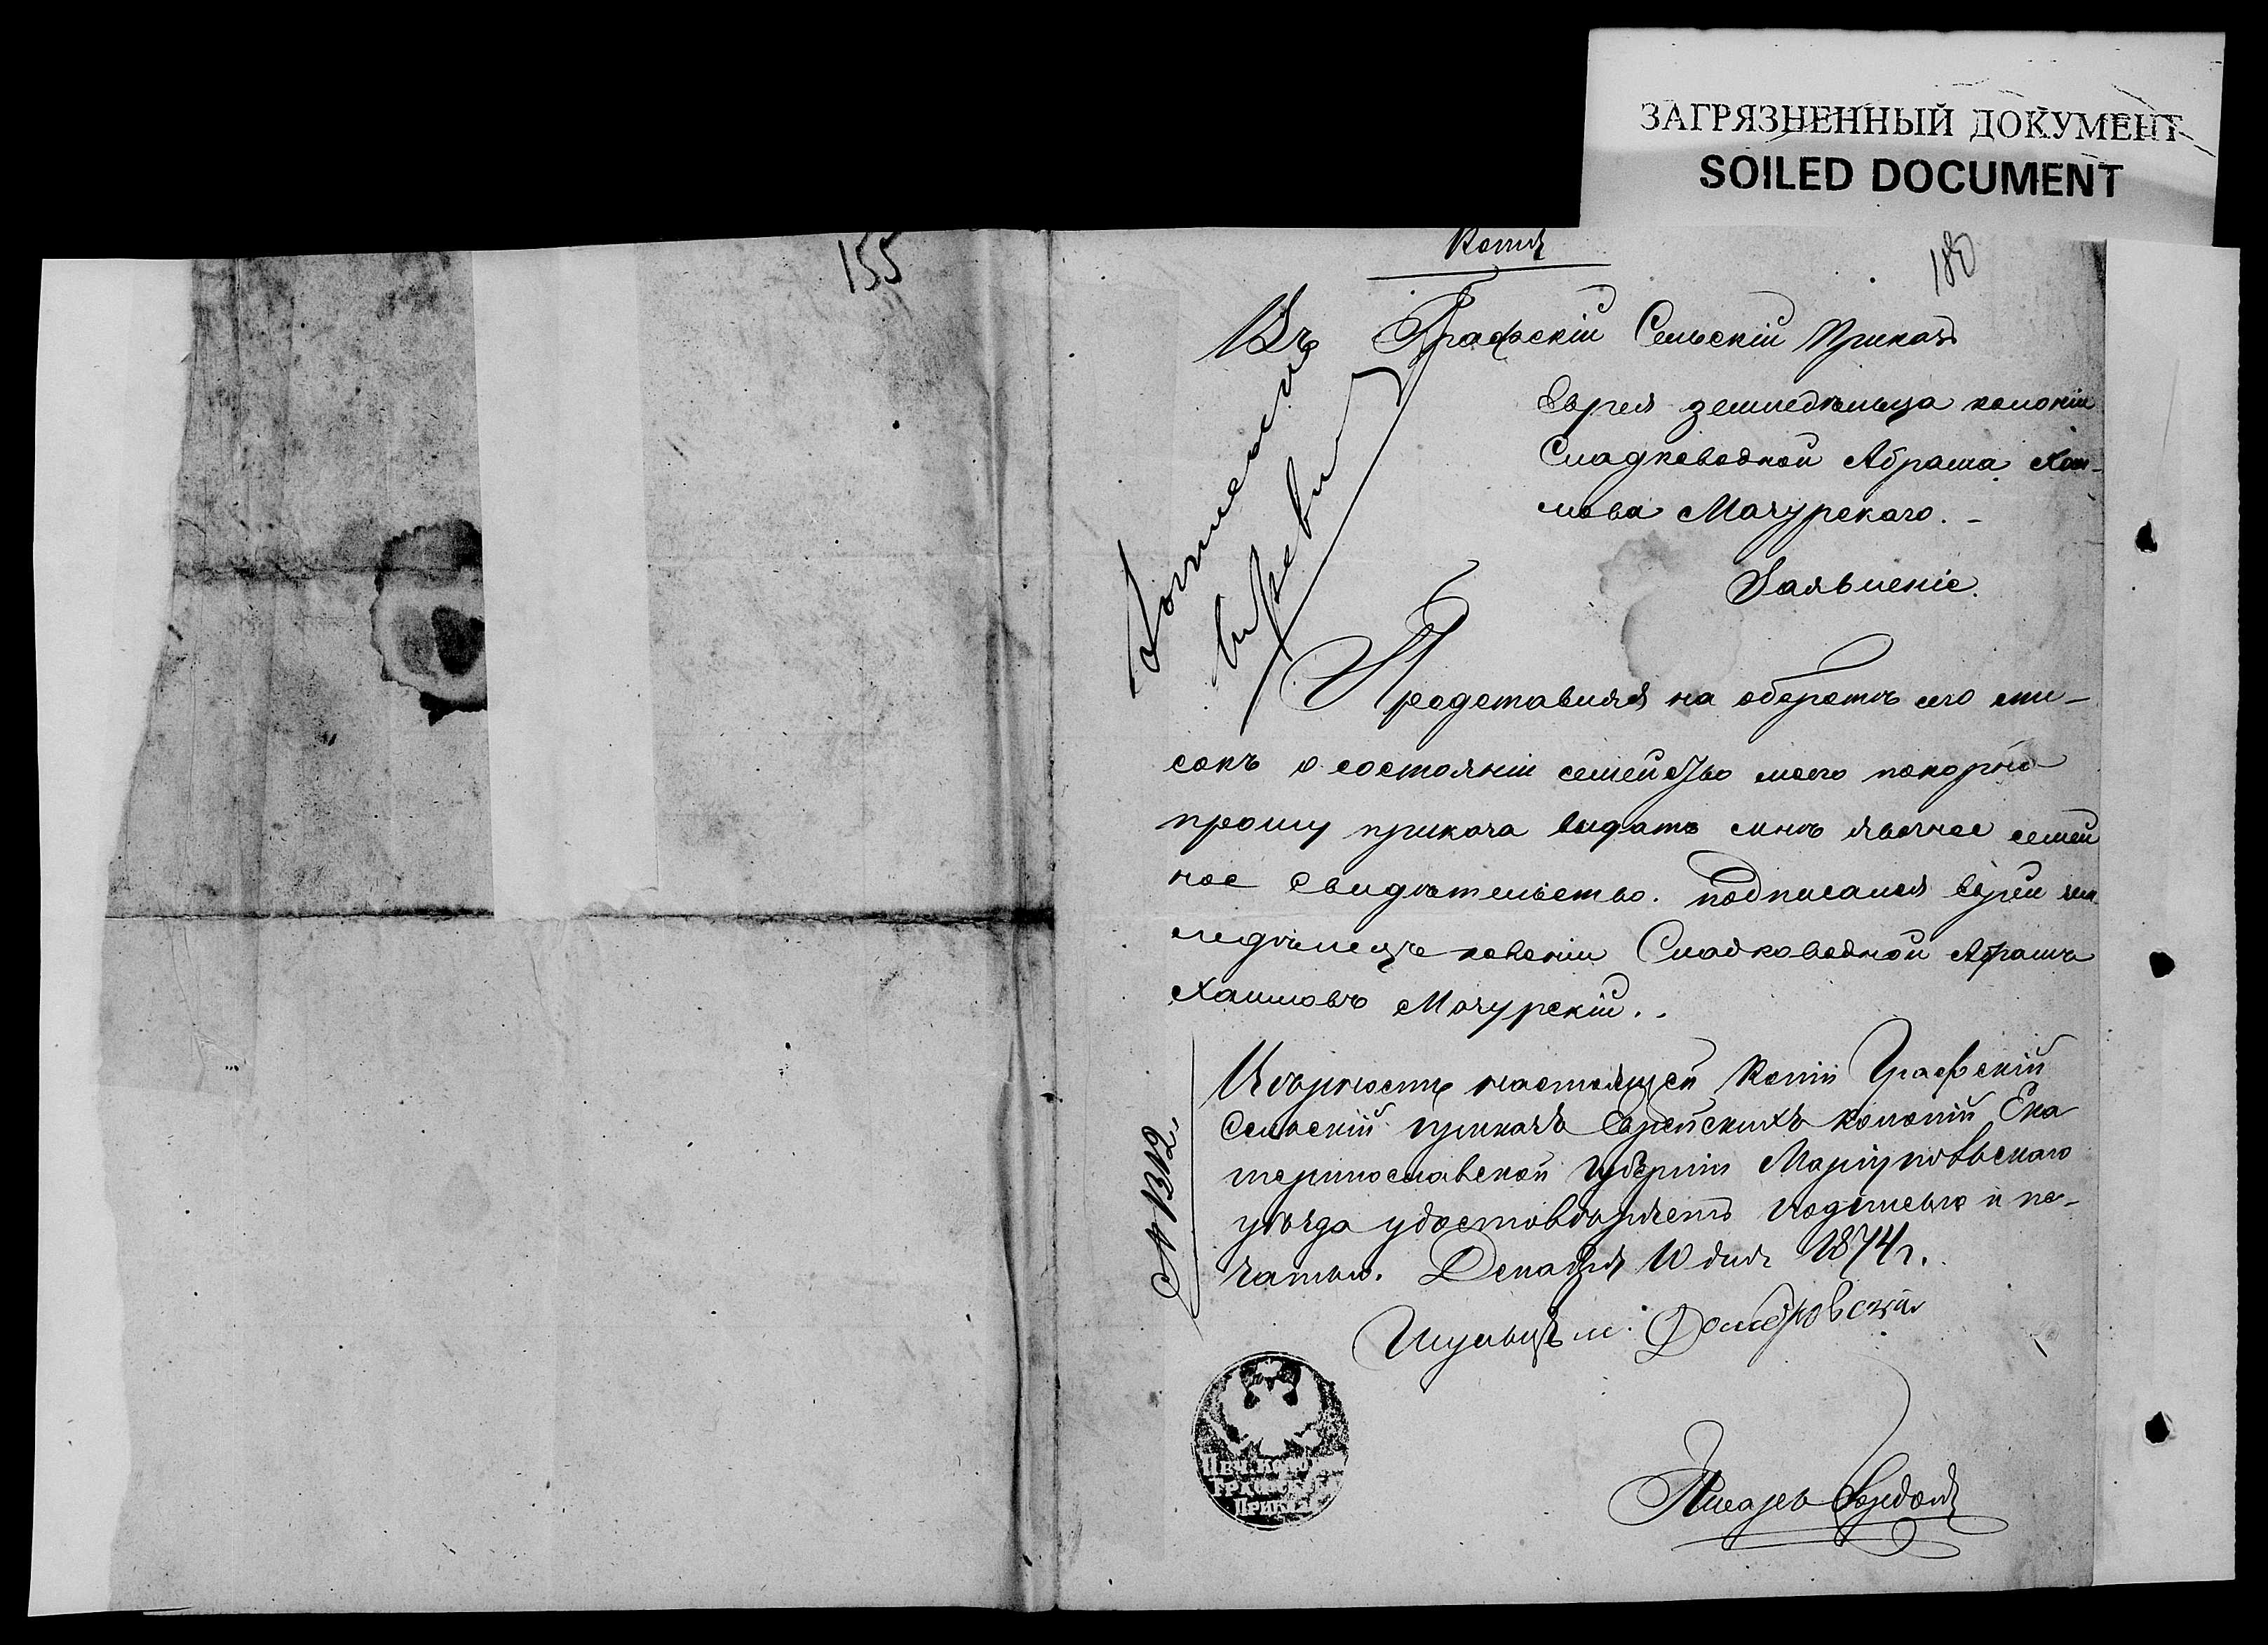 ЗАГРЯЗНЕННЫЙ ДОКУМЕНТ
SOILED DOCUMENT
155
Копія
180
Въ Графскій Сельскій Приказъ
Еврея земледѣльца колоніи
Сладководной Абрама Хаи-
мова Мазурскаго. -
Заявленіе.
Представляя на оборотѣ сего спи-
сокъ о состояніи семейство моего покорно
прошу приказа выдать мнѣ явочное семей
ное свидѣтельство. Подписался еврей зем
ледѣлецъ колоніи Сладководной Абрамъ
Хаимовъ Мазурскій..
Вѣрность настоящей копіи Графскій
Сельскій приказъ Еврейскихъ колоній Ека
теринославской губерніи Маріупольскаго
уѣзда удостовѣряетъ подписью и пе-
чатью. Декабря 10 дня 1874 г.
Шульцъ Домбровскій
Писарь Гордонъ
Печ. Коло
Графска
Приказ